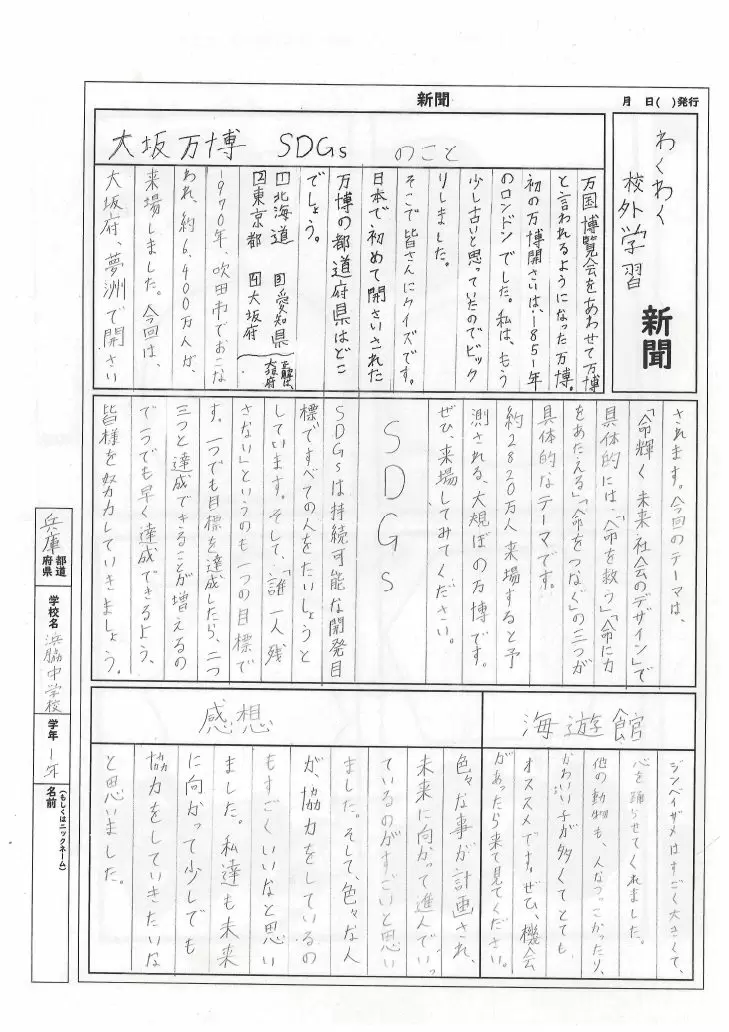 新聞
月 日( )発行
わくわく
校外学習
新聞
大坂万博 SDGs のこと
万国博覧会をあわせて万博
と言われるようになった万博。
初の万博開さいは、1851年
のロンドンでした。私は、もう
少し古いと思っていたのでビック
リしました。
そこで皆さんにクイズです。
日本で初めて開さいされた
万博の都道府県はどこ
でしょう。
①北海道 ③愛知県
②東京都 ④大坂府
正解は、
大坂府
1970年、吹田市でおこな
われ、約6,400万人が、
来場しました。今回は、
大坂府、夢洲で開さい
されます。今回のテーマは、
「命輝く未来社会のデザイン」で
具体的には、「命を救う」「命に力
をあたえる」「命をつなぐ」の三つが
具体的なテーマです。
約2820万人来場すると予
測される、大規ぼの万博です。
ぜひ、来場してみてください。
SDGs
SDGsは持続可能な開発目
標ですべての人をたいしょうと
しています。そして、「誰一人残
さない」というのも一つの目標で
す。一つでも目標を達成したら、二つ
三つと達成できることが増えるの
で一つでも早く達成できるよう、
皆様を努力していきましょう。
海遊館
ジンベイザメはすごく大きくて、
心を踊らせてくれました。
他の動物も、人なつっこかったり、
かわいい子が多くてとても
オススメです。ぜひ、機会
があったら来て見てください。
感想
色々な事が計画され、
未来に向かって進んでいっ
ているのがすごいと思い
ました。そして、色々な人
が、協力をしているの
もすごくいいなと思い
ました。私達も未来
に向かって少しでも
協力をしていきたいな
と思いました。
兵庫 都道府県
学校名 浜脇中学校
学年 1年
名前(もしくはニックネーム)